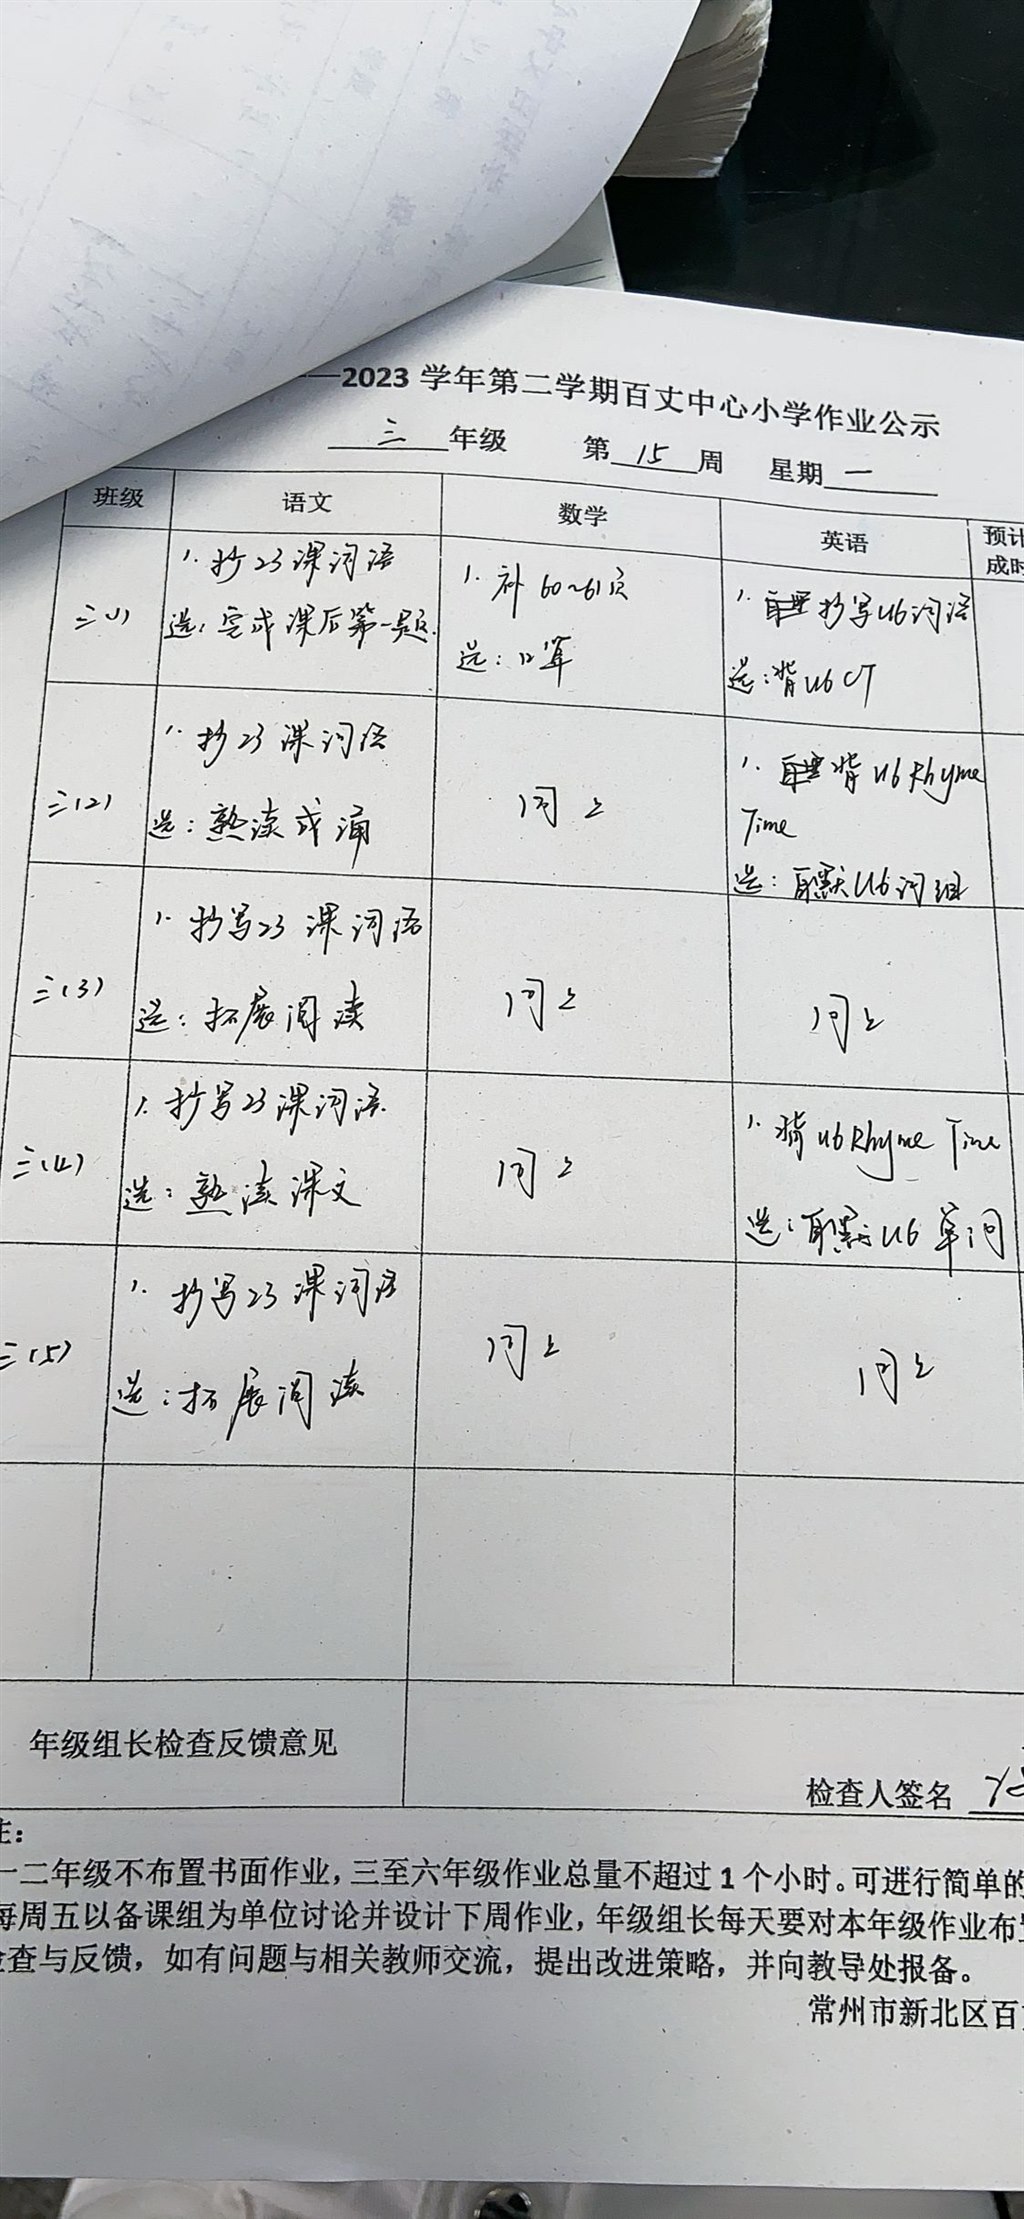 2023 学年第二学期百丈中心小学作业公示
三 年级 第 15 周 星期 一
班级 语文 数学 英语 预计
成时
三(1)
1. 抄23课词语
选：完成课后第一题.
1. 补 60~61页
选：口算
1. 抄写U6词语
选：背U6 CT
三(2)
1. 抄23课词语
选：熟读成诵
同上
1. 背U6 Rhyme
Time
选：自默U6词组
三(3)
1. 抄写23课词语
选：拓展阅读
同上
同上
三(4)
1. 抄写23课词语.
选：熟读课文
同上
1. 背U6 Rhyme Time
选：自默U6单词
三(5)
1. 抄写23课词语
选：拓展阅读
同上
同上
年级组长检查反馈意见
检查人签名
注：
一二年级不布置书面作业，三至六年级作业总量不超过 1 个小时。可进行简单的
每周五以备课组为单位讨论并设计下周作业，年级组长每天要对本年级作业布置
检查与反馈，如有问题与相关教师交流，提出改进策略，并向教导处报备。
常州市新北区百